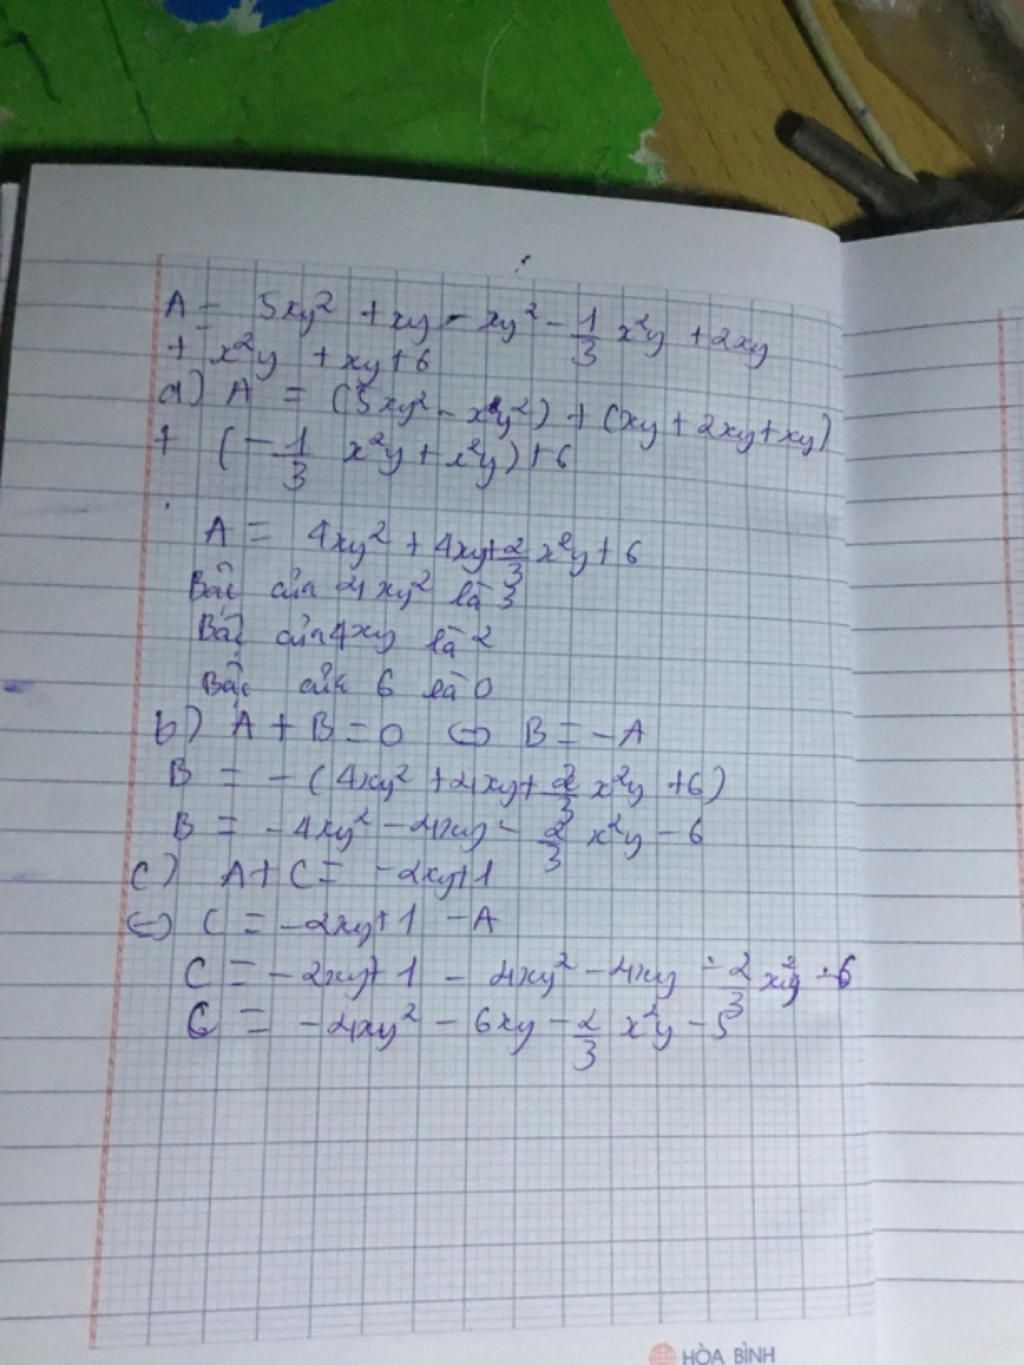 A = 5xy² + xy - xy² - 1/3 x²y + 2xy
+ x²y + xy + 6
a) A = (5xy² - xy²) + (xy + 2xy + xy)
+ (-1/3 x²y + x²y) + 6
A = 4xy² + 4xy + 2/3 x²y + 6
Bậc của 4xy² là 3
Bậc của 4xy là 2
Bậc của 6 là 0
b) A + B = 0 ⇔ B = -A
B = -(4xy² + 4xy + 2/3 x²y + 6)
B = -4xy² - 4xy - 2/3 x²y - 6
c) A + C = -2xy + 1
⇔ C = -2xy + 1 - A
C = -2xy + 1 - 4xy² - 4xy - 2/3 x²y - 6
C = -4xy² - 6xy - 2/3 x²y - 5
HÒA BÌNH